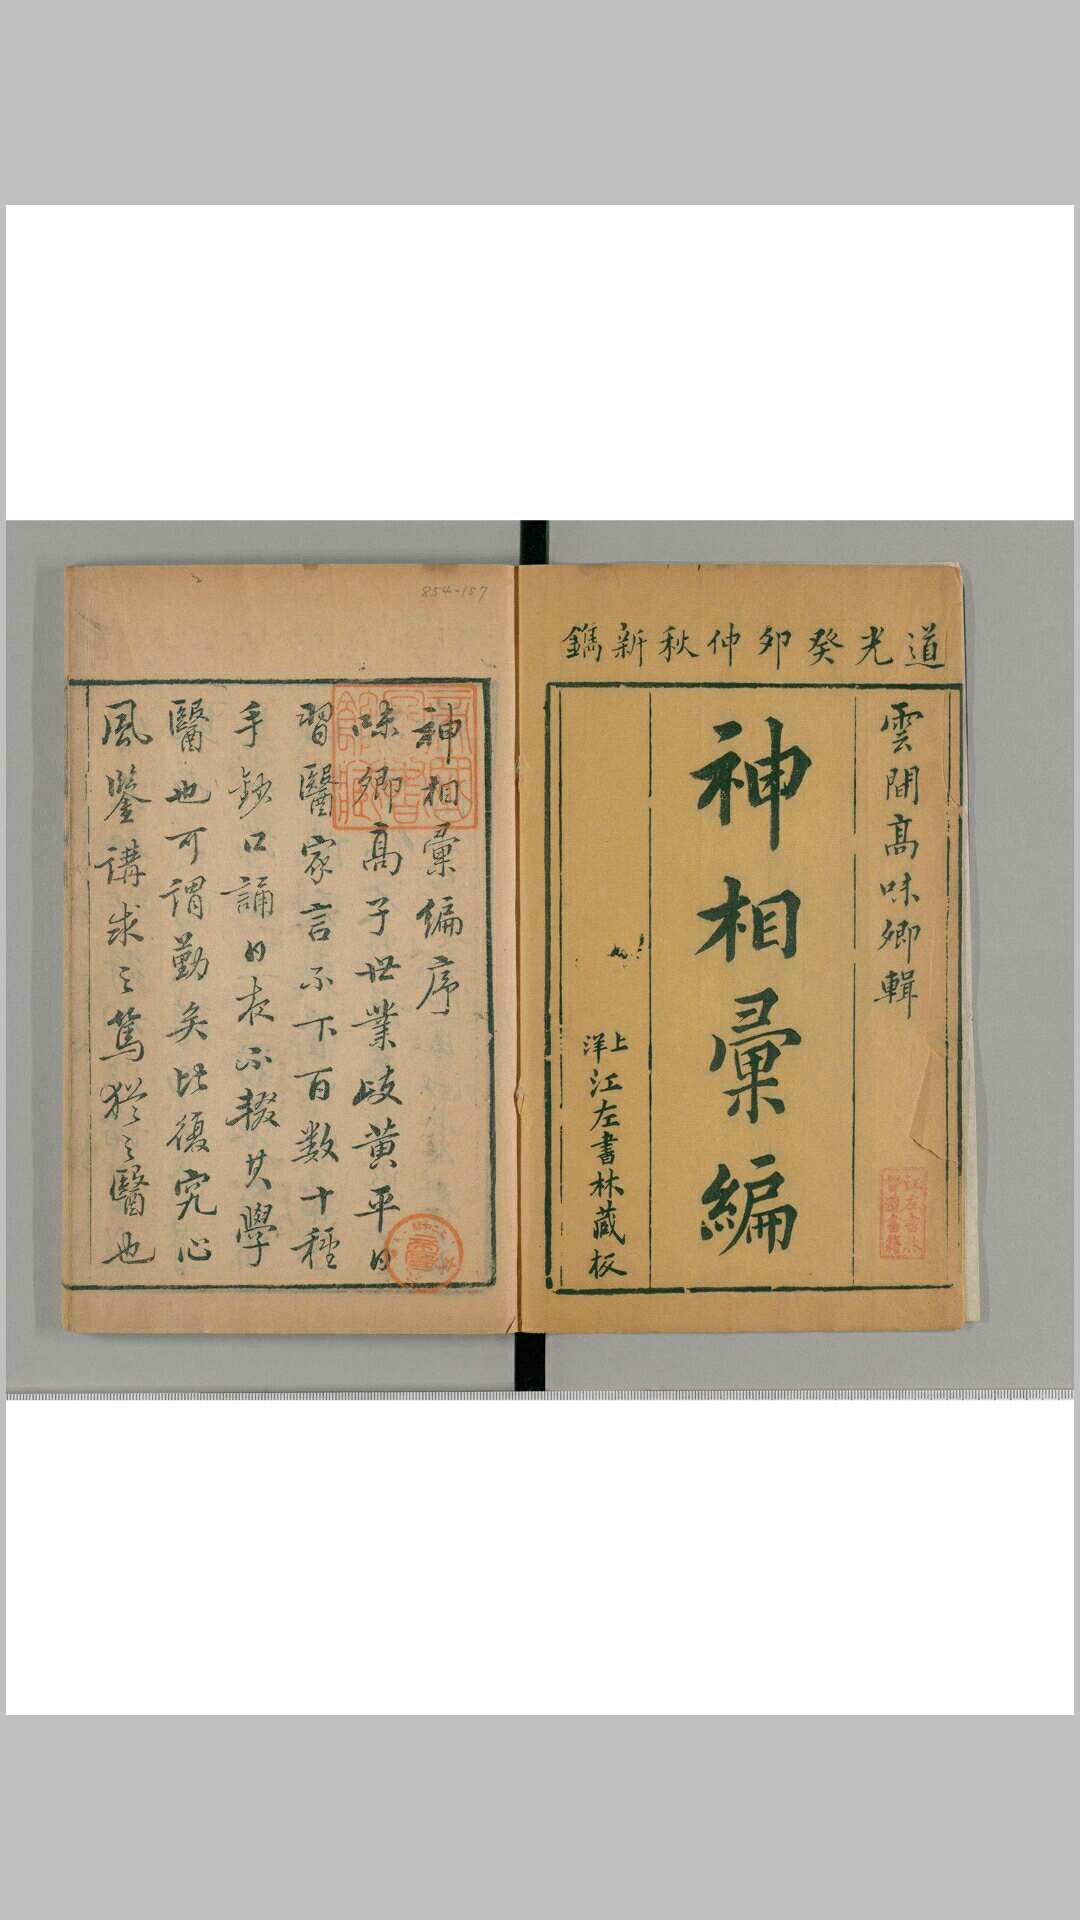 道光癸卯仲秋新鐫
雲間高味卿輯
神相彙編
上洋江左書林藏板
854-157
神相彙編序
味卿高子世業歧黄平日
習醫家言不下百数十種
手鈔口誦日夜不輟其學
醫也可謂勤矣比復究心
風鑒講求之篤猶之醫也